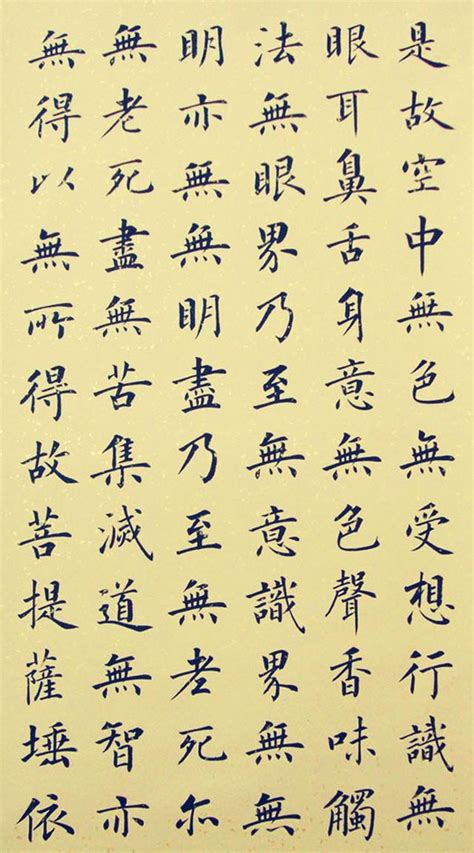 是故空中無色無受想行識無
眼耳鼻舌身意無色聲香味觸
法無眼界乃至無意識界無無
明亦無無明盡乃至無老死亦
無老死盡無苦集滅道無智亦
無得以無所得故菩提薩埵依